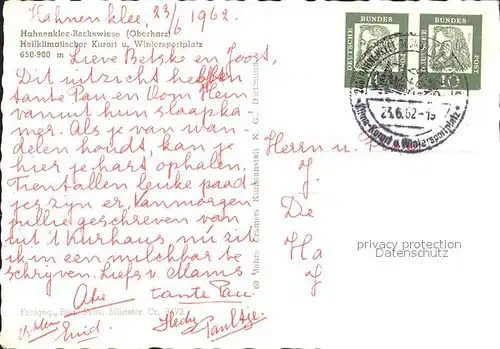 Hahnenklee, 23/6 1962.
Hahnenklee-Bockswiese (Oberharz)
Heilklimatischer Kurort u. Wintersportplatz
650-900 m
Lieve Betske en Joost,
Dit uitzicht hebben
tante Pau en Oom Hein
vanuit hun slaapka
mer. Als je van wan-
delen houdt, kan je
hier je hart ophalen.
Tientallen leuke paad-
jes zijn er. Vanmorgen
jullie geschreven van
uit 't Kurhaus nu zit
ik in een milchbar te
schrijven. Liefs v. Mams
tante Pau
Freigeg. Reg. Präs. Münster Cr. 8472
60 Jahre Cramers Kunstanstalt K. G., Dortmund
DEUTSCHE BUNDES POST
BUNDES POST
10
23.6.62-15
Kurort u. Wintersportplatz
Herrn u.
J.
De
Ha
J
privacy protection
AnsichtskartenVersand.com